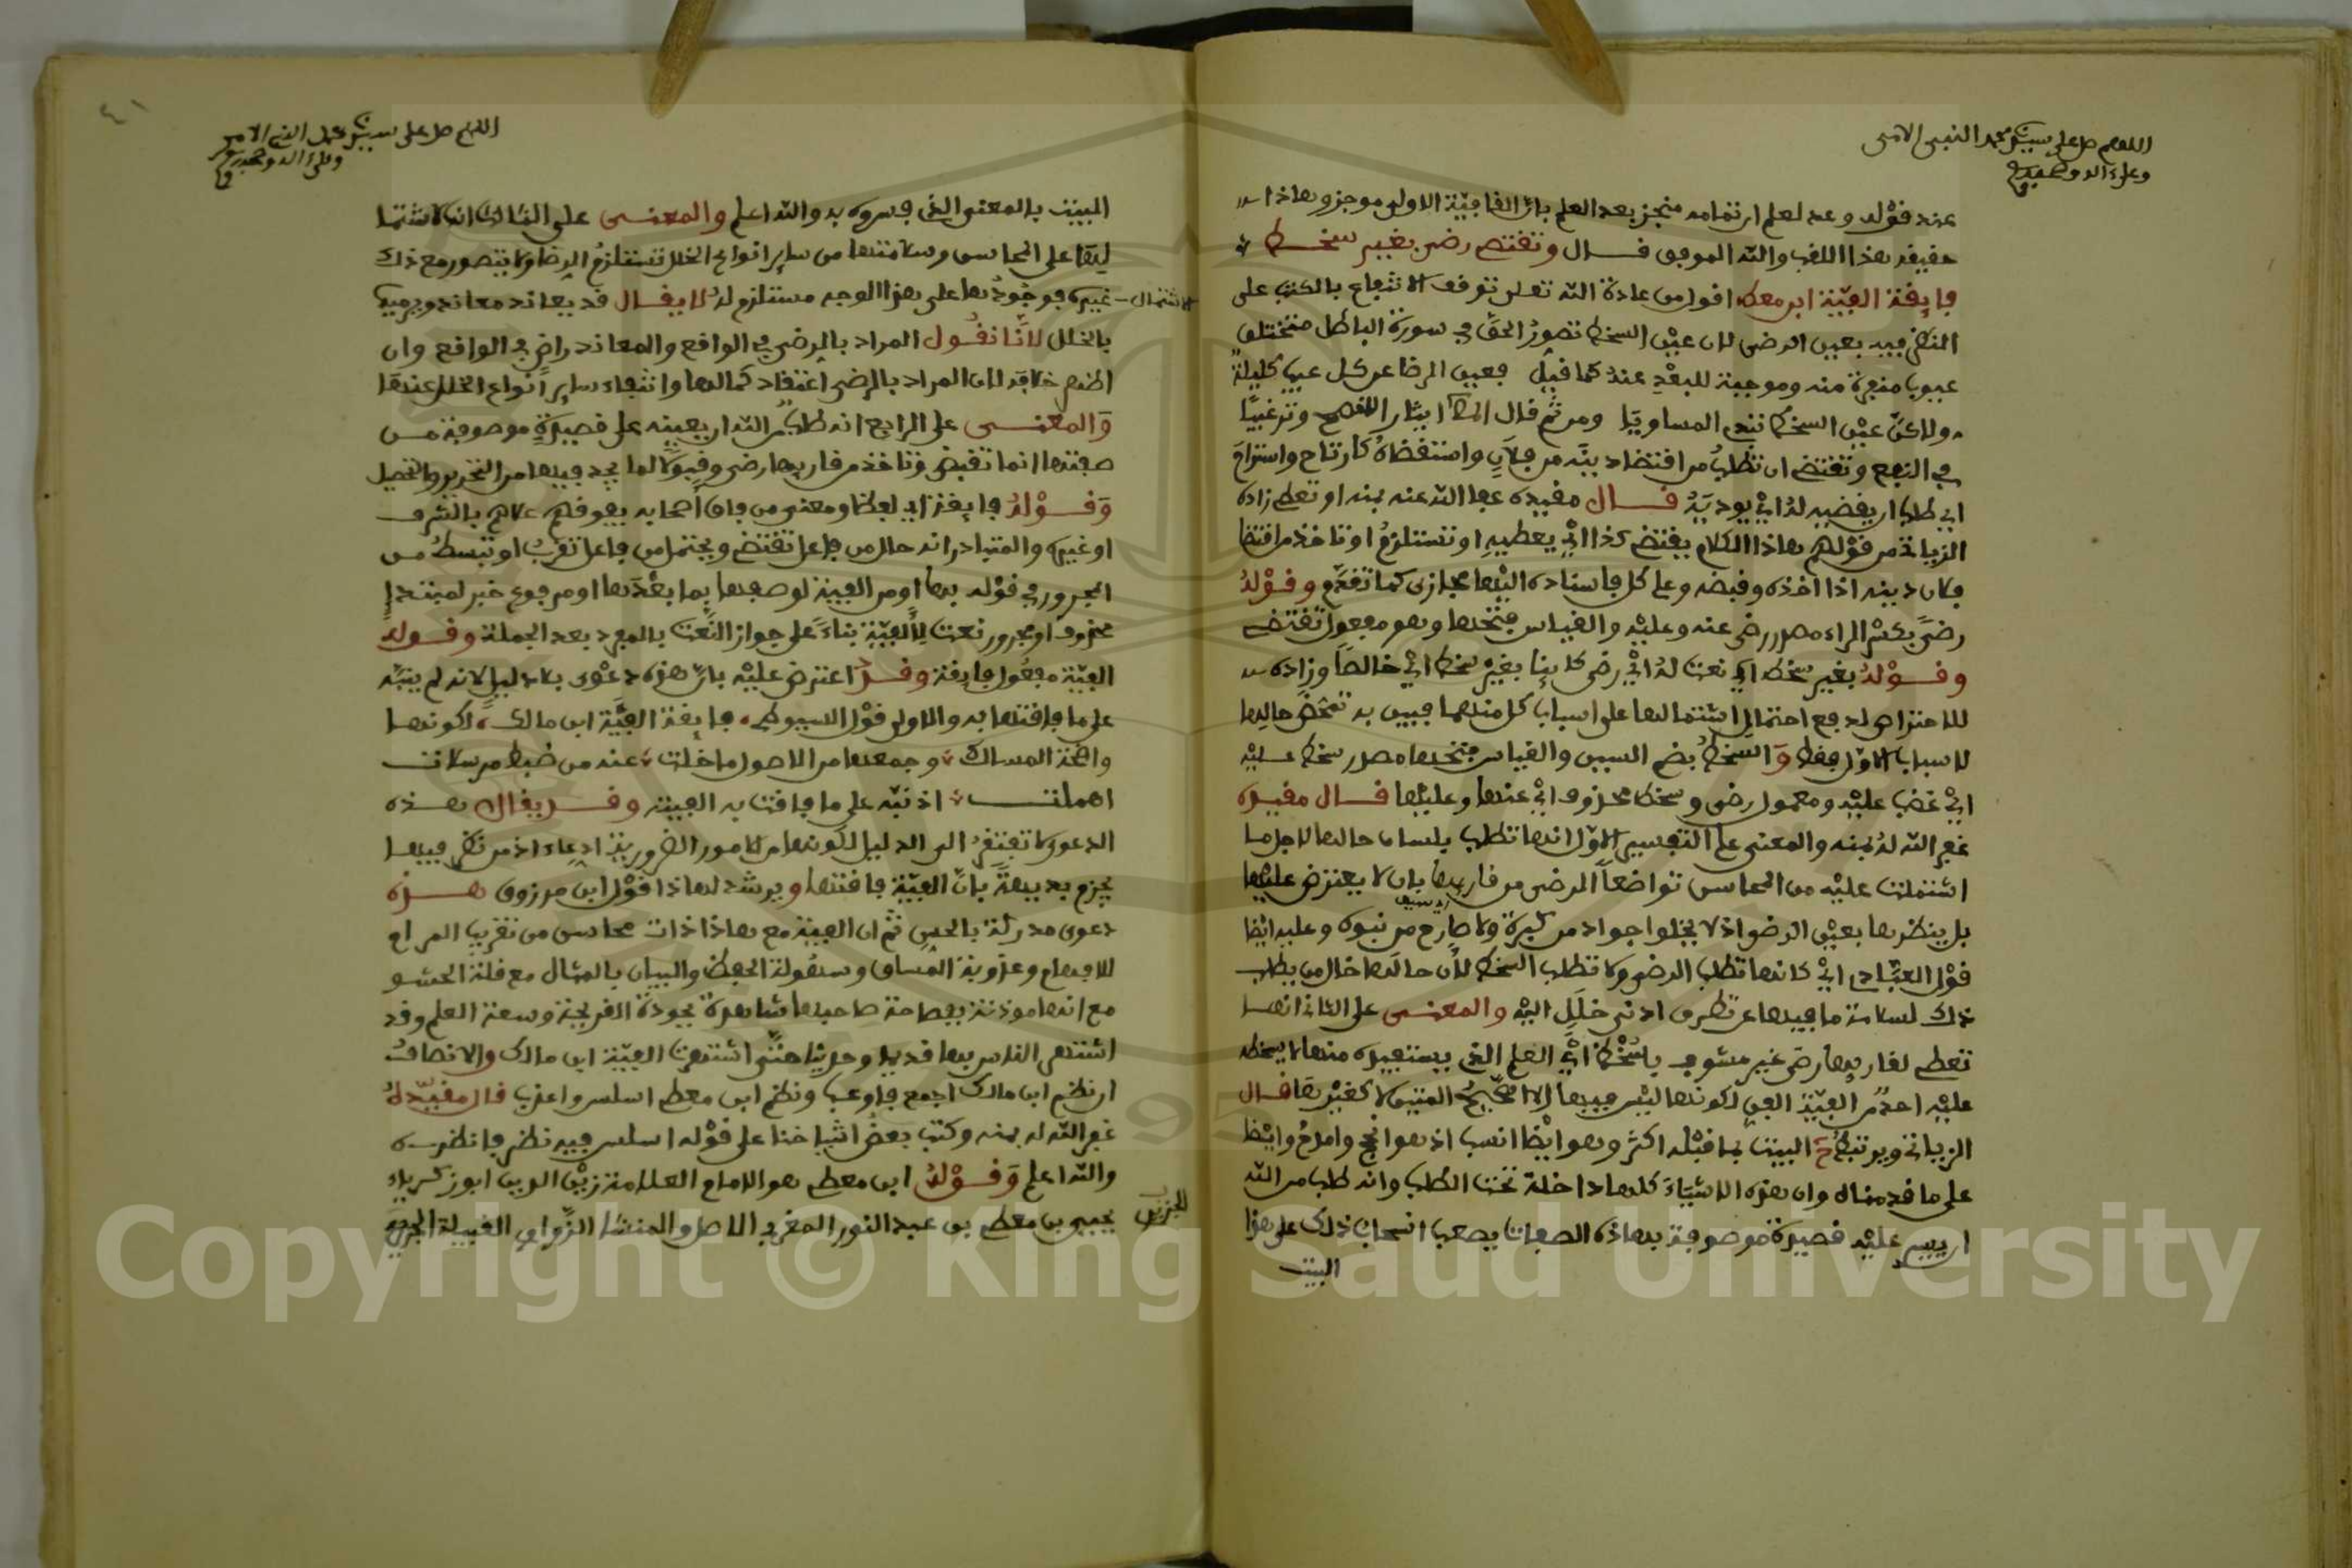 اللهم صل على سيدنا محمد النبي الامي
وعلى آله وصحبه
عند قوله وعد لعلم ان تمامه منجز بعد العلم بان القافية الاولى موجز وهاذا
حقيقة هذا اللقب والله الموفق قال وتقتضي رضى بغير سخط
فايقة الفية ابن معط اقول من عادة الله تعلى توقف الانتفاع بالكتب على
النظر فيه بعين الرضى لان عين السخط تصور الحق في سورة الباطل فتختلق
عيوبا منفرة منه وموجبة للبعد عنه كما قيل فعين الرضا عن كل عيب كليلة
ولاكن عين السخط تبدي المساويا ومن ثم قال ايثارا للنصح وترغيبا
في النفع وتقتضي ان تطلب من اقتضاد بينه من فلان واستقضاه كارتاح واستراح
اي طلب ان يقضيه له اي يوديه قال مقيده عفا الله عنه بمنه او تعطي زاده
الزيات من قولهم هاذا الكلام يقتضي كذا اي يعطيه او تستلزم او تاخذ من اقتضا
فلان دينه اذا اخذه وقبضه وعلى كل فاسناده اليها مجازى كما تقدم وقوله
رضى بكسر الراء مصدر رضى عنه وعليه والقياس فتحها وهو مفعول تقتضي
وقوله بغير سخط اي نعت له اي رضى كاينا بغير سخط اي خالصا وزاده
للاحتراس لدفع احتمال اشتمالها على اسباب كل منهما فبين به تمحض حالها
لاسباب الاول فقط والسخط بضم السين والقياس فتحها مصدر سخط عليه
اي غضب عليه ومعمول رضى وسخط محذوف اي عنها وعليها قال مقيده
غفر الله له بمنه والمعنى على التفسير الاول انها تطلب بلسان حالها لاجل ما
اشتملت عليه من المحاسن تواضعا الرضى من قاريها بان لا يعترض عليها
بل ينظرها بعين الرضى اذ لا يخلوا جواد من كبوة ولا صارم من نبوة وعليه ايضا
قول العباد اي كانها تطلب الرضى ولا تطلب السخط لان حالها خال من يطلب
ذلك لسلامة ما فيها عن تطرق ادنى خلل اليه والمعنى على الثاني انها
تعطي لقاريها رضى غير مشوب بسخط اي العلم الذي يستفيده منها لا يسخطه
عليه احد من الفية الفن لكونها ليس فيها الا الصحيح المتين لا كغيرها قال
الزياتي ويرتبط ح البيت بما قبله اكثر وهو ايضا انسب اذ هو انجح وامدح وايضا
على ما قدمناه وان هذه الاشياء كلها داخلة تحت الطلب وانه طلب من الله
ان ييسر عليه قصيدة موصوفة بهاذه الصفات يصعب انسحاب ذلك على هذا
البيت
٤١
اللهم صل على سيدنا محمد النبي الامي
وعلى آله وصحبه
المبيت بالمعنى الذي فسروه به والله اعلم والمعنى على الثالث انها لاشتما
ليتها على المحاسن وسلامتها من ساير انواع الخلل تستلزم الرضا ولا يتصور مع ذلك
غيره فوجودها على هذا الوجه مستلزم له لا يقال قد يعاند معاند ويرميها
الاشتمال
بالخلل لانا نقول المراد بالرضى في الواقع والمعاند راض في الواقع وان
اظهر خلافه لان المراد بالرضى اعتقاد كمالها وانتفاء ساير انواع الخلل عنها
والمعنى على الرابع انه طلب من الله ان يعينه على قصيدة موصوفة من
صفتها انها تقبض وتاخذ من قاريها رضى وقبولا لما يجد فيها من التحرير والتحصيل
وقوله فايقة اي لفظا ومعنى من فاق اصحابه يفوقهم علاهم بالشرف
او غيره والمتبادر انه حال من فاعل تقتضي ويحتمل من فاعل تقرب او تبسط من
المجرور في قوله بها او من الفية لوصفها بما بعدها او مرفوع خبر لمبتدإ
محذوف او مجرور نعت لالفية بناء على جواز النعت بالمفرد بعد الجملة وقوله
الفية مفعول فايقة وقد اعترض عليه بان هذه دعوى بلا دليل لانه لم ينبه
على ما فاقتها به والاولى قول السيوطي فايقة الفية ابن مالك لكونها
واضحة المسالك وجمعها من الاصول ما خلت عنه من ضبط مرسلات
اهملت اذ نبه على ما فاقت به الفية وقد يقال هذه
الدعوى لا تفتقر الى الدليل لكونها من الامور الضرورية ادعاء اذ من نظر فيها
يجزم بديهة بان الفية فاقتها ويرشد لهاذا قول ابن مرزوق هذه
دعوى مدركة بالحس ثم ان الفية مع هاذا ذات محاسن من تقريب المرام
للافهام وعذوبة المساق وسهولة الحفظ والبيان بالمثال مع قلة الحشو
مع انها موذنة بفصاحة صاحبها شاهدة بجودة القريحة وسعة العلم وقد
اشتغل الناس بها قديما وحديثا حتى اشتهرت الفية ابن مالك والانصاف
ان نظم ابن مالك اجمع واوعب ونظم ابن معطي اسلس واعذب قال مقيده
غفر الله له بمنه وكتب بعض اشياخنا على قوله اسلس فيه نظر فانظره
والله اعلم وقوله ابن معطي هو الامام العلامة زين الدين ابو زكرياء
يحيى بن معطي بن عبد النور المغربي الاصل والمنشا الزواوي القبيلة